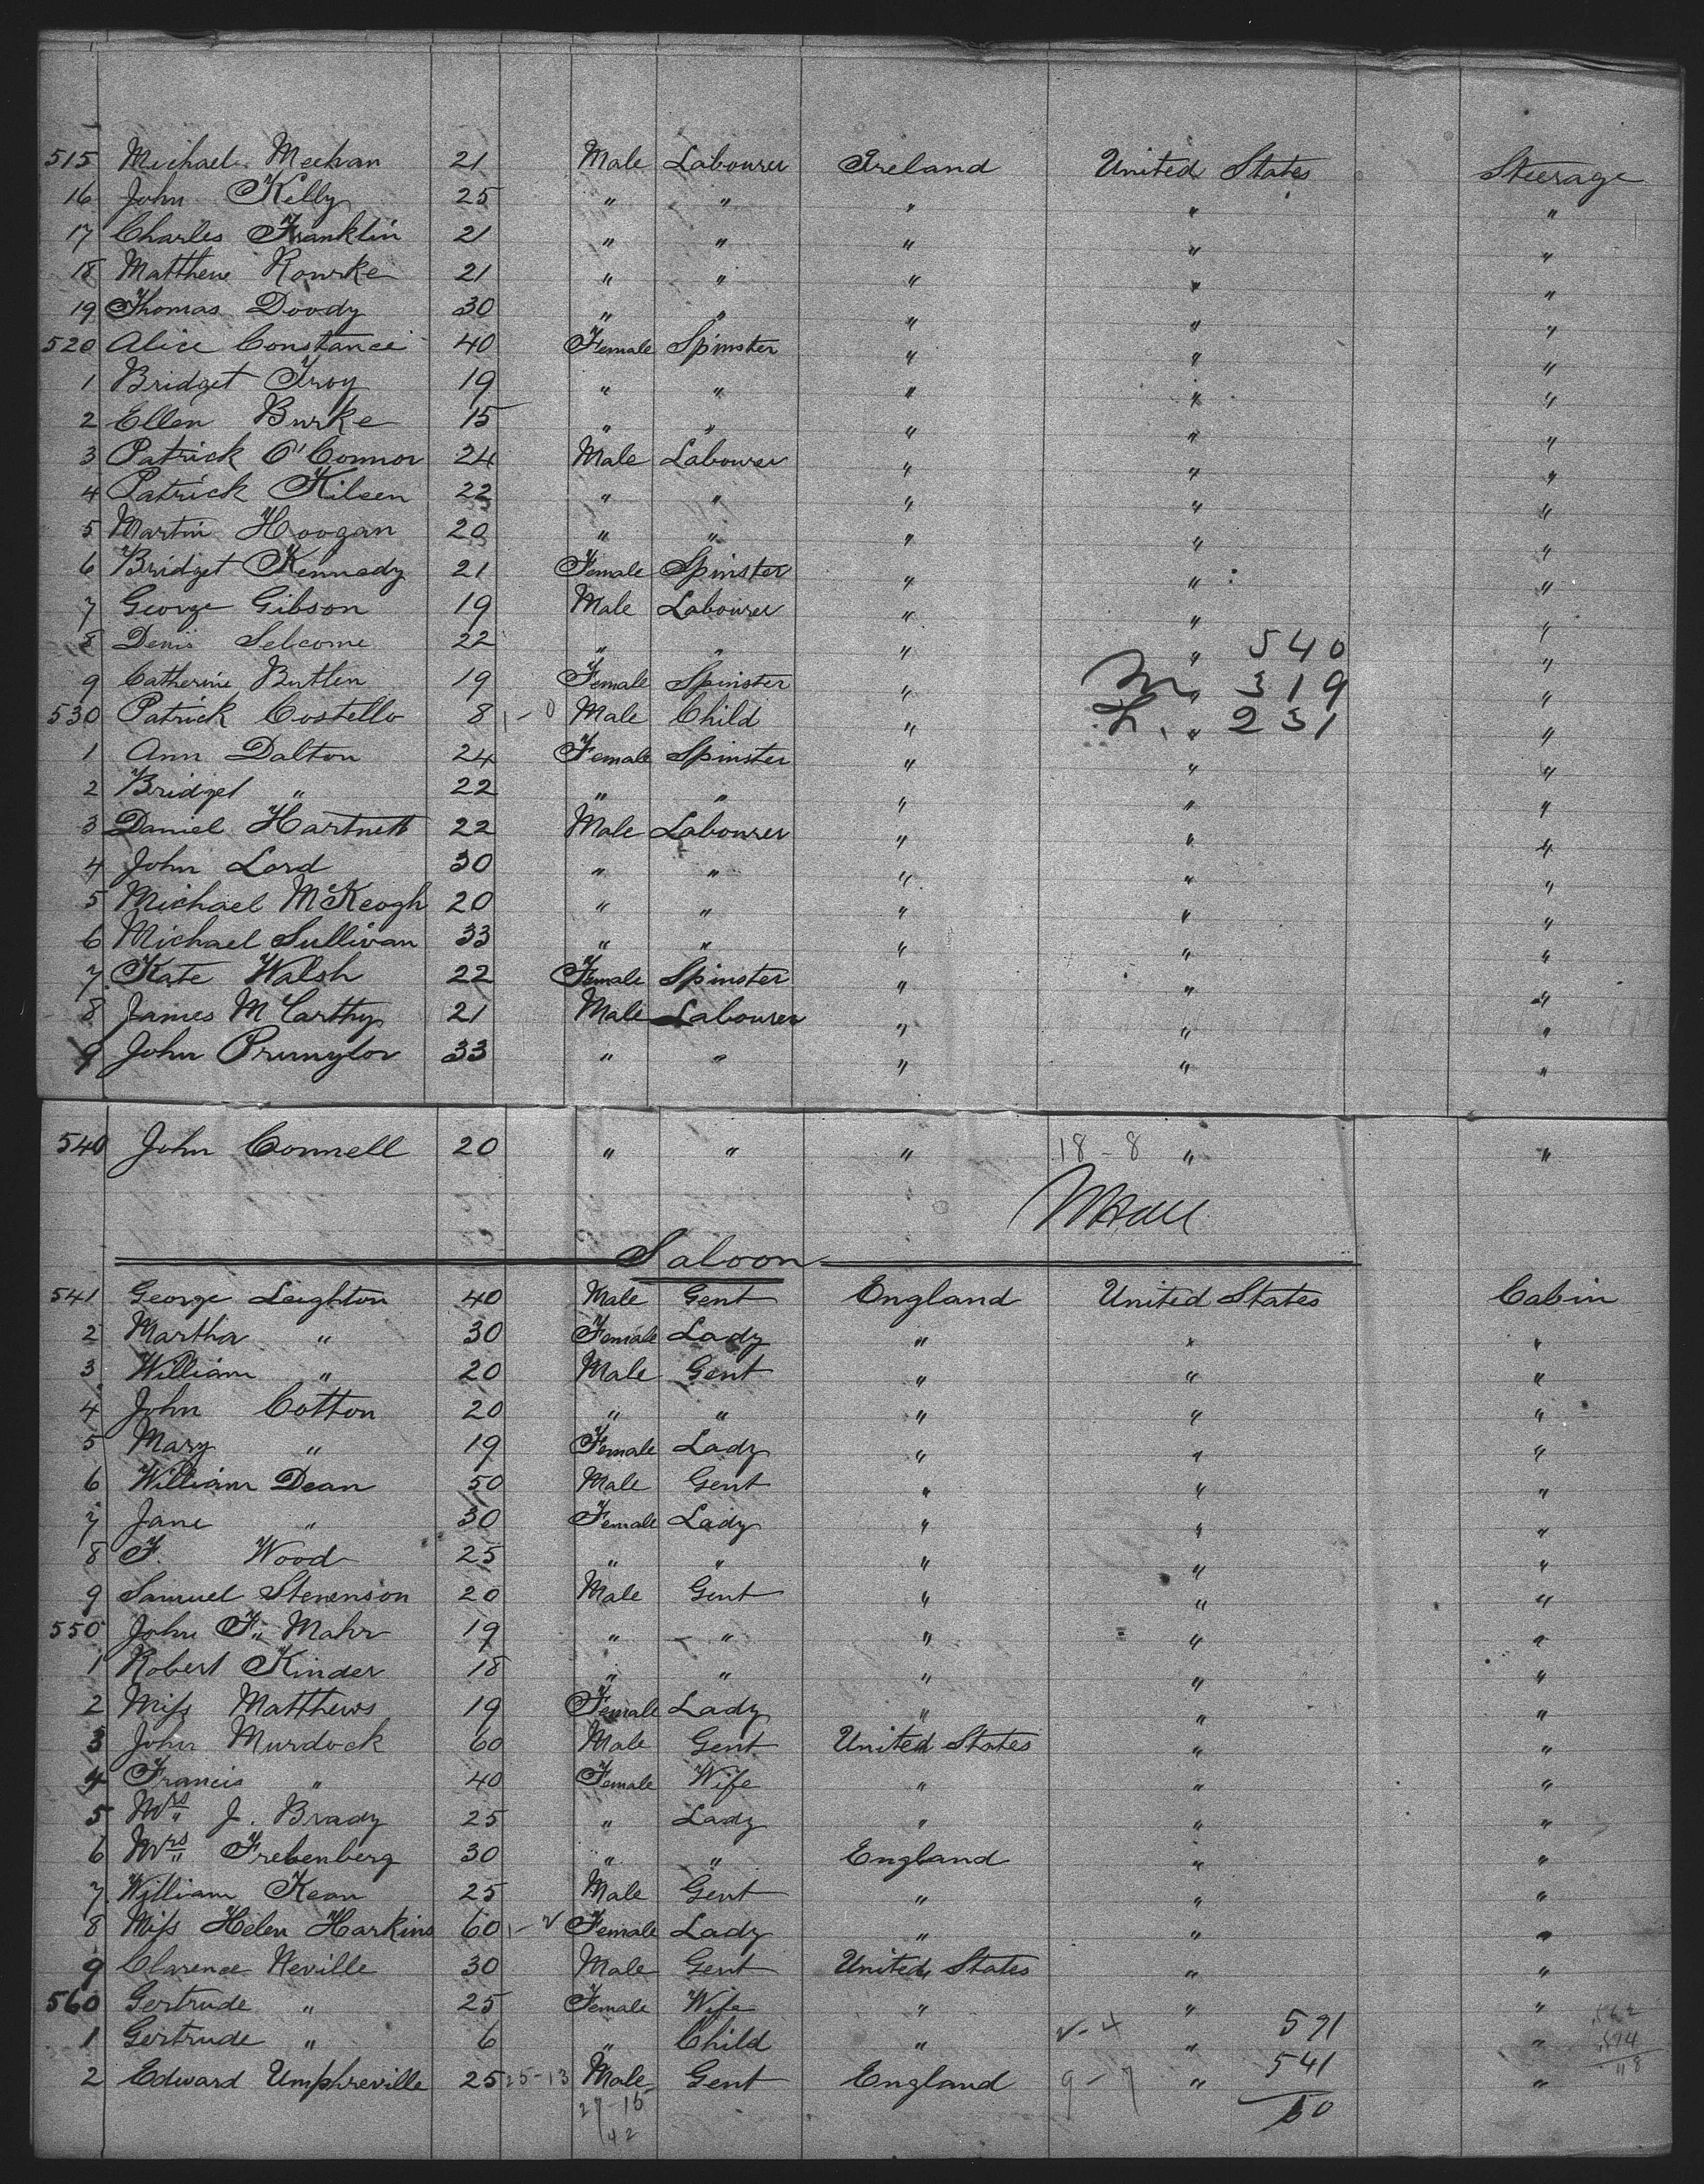 515 Michael Meehan 21 Male Labourer Ireland United States Steerage
16 John Kelly 25 " " " " "
17 Charles Franklin 21 " " " " "
18 Matthew Rourke 21 " " " " "
19 Thomas Doody 30 " " " " "
520 Alice Constance 40 Female Spinster " " "
1 Bridget Troy 19 " " " " "
2 Ellen Burke 15 " " " " "
3 Patrick O'Connor 24 Male Labourer " " "
4 Patrick Kileen 22 " " " " "
5 Martin Hoogan 20 " " " " "
6 Bridget Kennedy 21 Female Spinster " " "
7 George Gibson 19 Male Labourer " " "
8 Denis Selcome 22 " " " " 540 "
9 Catherine Butler 19 Female Spinster " M " 319 "
530 Patrick Costello 8 1-0 Male Child " " 231 "
1 Ann Dalton 24 Female Spinster " " "
2 Bridget " 22 " " " " "
3 Daniel Hartnett 22 Male Labourer " " "
4 John Lord 30 " " " " "
5 Michael McKeogh 20 " " " " "
6 Michael Sullivan 33 " " " " "
7 Kate Walsh 22 Female Spinster " " "
8 James McCarthy 21 Male Labourer " " "
9 John 33 " " " " "
540 John Connell 20 " " " 18-8 " "
Saloon
541 George Leighton 40 Male Gent England United States Cabin
2 Martha " 30 Female Lady " " "
3 William " 20 Male Gent " " "
4 John Cotton 20 " " " " "
5 Mary " 19 Female Lady " " "
6 William Dean 50 Male Gent " " "
7 Jane " 30 Female Lady " " "
8 F. Wood 25 " " " " "
9 Samuel Stevenson 20 Male Gent " " "
550 John F. Mahr 19 " " " " "
1 Robert Kinder 18 " " " " "
2 Miss Matthews 19 Female Lady " " "
3 John Murdock 60 Male Gent United States " "
4 Francis " 40 Female Wife " " "
5 Mrs J. Brady 25 " Lady " " "
6 Mrs Frebenberg 30 " " England " "
7 William Kean 25 Male Gent " " "
8 Miss Helen Harkins 60 Female Lady " " "
9 Clarence Neville 30 Male Gent United States " "
560 Gertrude " 25 Female Wife " " "
1 Gertrude " 6 " Child " " 591 "
2 Edward Umphreville 25 25-13 Male Gent England 9-7 " 541 "
27-15
42